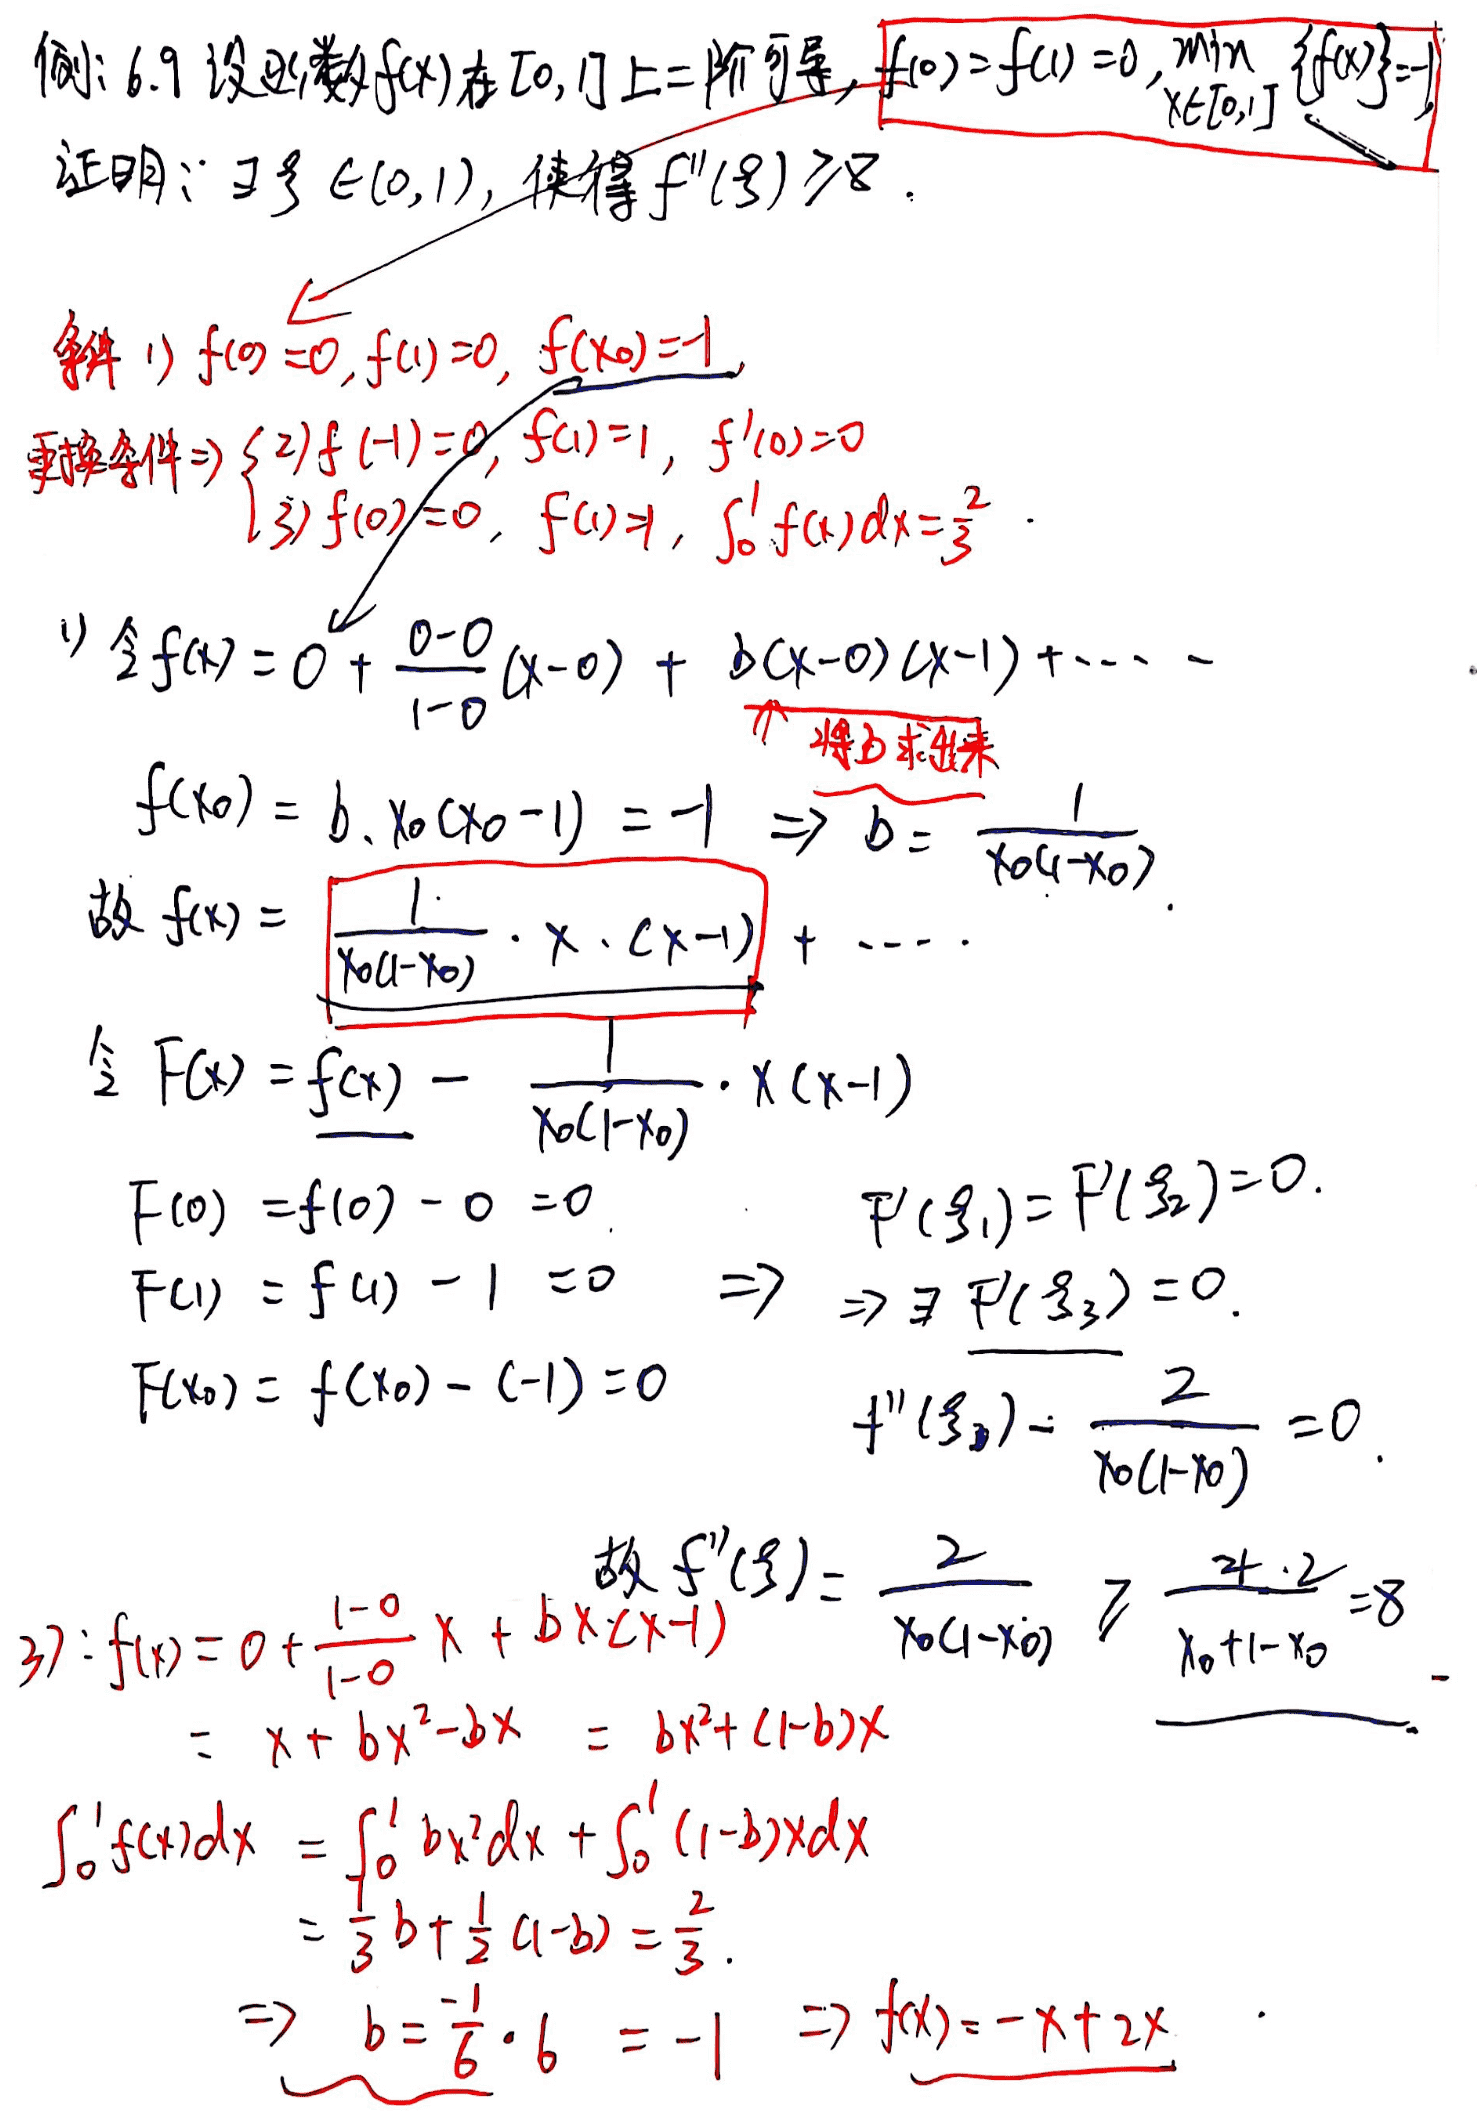 例:6.9 设函数f(x)在[0,1]上二阶可导,f(0)=f(1)=0, min {f(x)}=-1
x∈[0,1]
证明:∃ξ∈(0,1), 使得f''(ξ)≥8.
条件 1) f(0)=0, f(1)=0, f(x₀)=-1,
更换条件⇒ { 2) f(-1)=0, f(1)=1, f'(0)=0
3) f(0)=0, f(1)=1, ∫₀¹ f(x)dx=2/3 .
1) 令f(x) = 0 + (0-0)/(1-0) (x-0) + b(x-0)(x-1)+-----
↑ 将b求出来
f(x₀) = b. x₀(x₀-1) = -1 ⇒ b= 1/(x₀(1-x₀)).
故 f(x) = 1/(x₀(1-x₀)) · x · (x-1) + -----.
令 F(x) = f(x) - 1/(x₀(1-x₀)) · x(x-1)
F(0) = f(0) - 0 = 0. F'(ξ₁) = F'(ξ₂) = 0.
F(1) = f(1) - 1 = 0 ⇒ ⇒ ∃ F'(ξ₃) = 0.
F(x₀) = f(x₀) - (-1) = 0
f''(ξ₃) - 2/(x₀(1-x₀)) = 0.
故 f''(ξ) = 2/(x₀(1-x₀)) ≥ 4·2/(x₀+1-x₀) = 8
3): f(x) = 0 + (1-0)/(1-0) x + bx(x-1)
= x + bx²-bx = bx²+(1-b)x
∫₀¹ f(x)dx = ∫₀¹ bx²dx + ∫₀¹ (1-b)xdx
= 1/3 b + 1/2 (1-b) = 2/3 .
⇒ b = -1/6 · 6 = -1 ⇒ f(x) = -x+2x